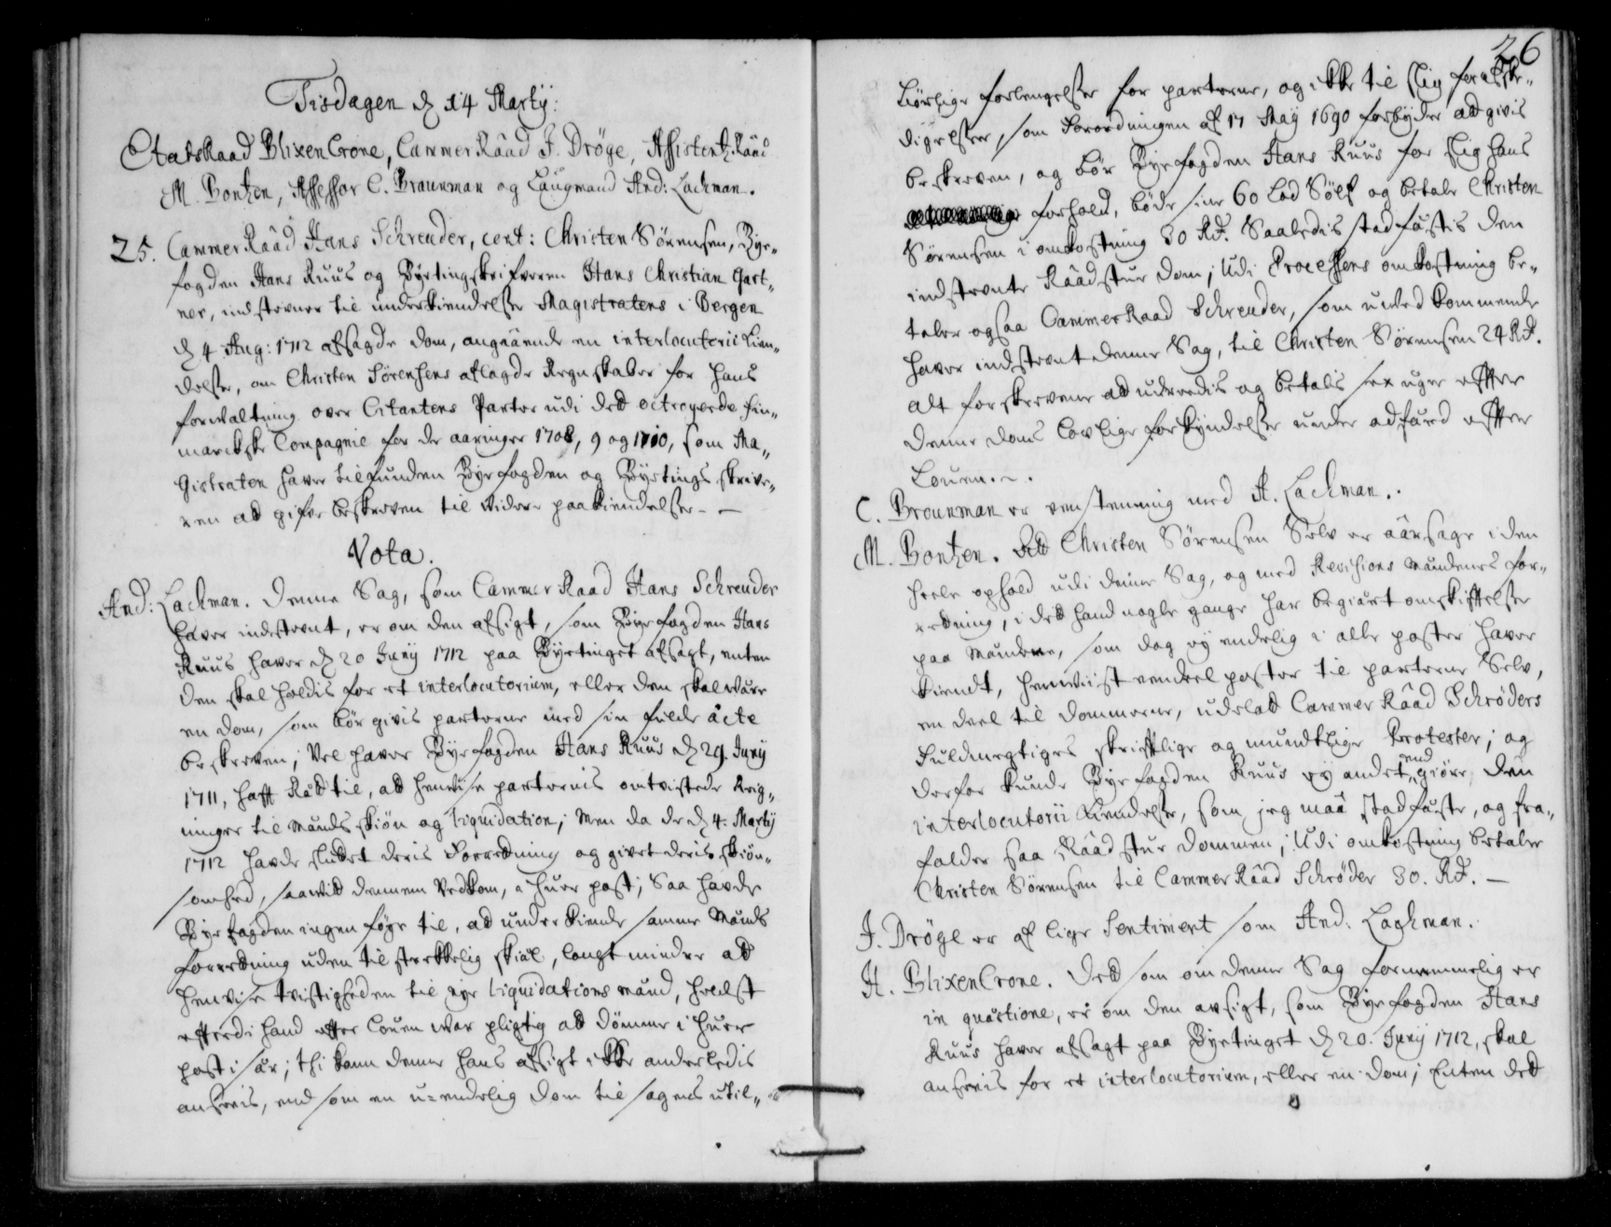 Tisdagen d 14 Martÿ:
EtatsRaad BlixenCrone, CammerRaad J. Dröge, AssistentzRaad
M. Bontzen, Assessor C. Braunman og Laugmand And: Lachman.
25. CammerRaad Hans Schreuder, cont: Christen Sörensen, Bÿe-
fogden Hans Ruus og Bÿetingskrifveren Hans Christian Gart-
ner, indstevner til underkiendelse Magistratens i Bergen
d 4 Aug: 1712 afsagde dom, angaaende en interlocutorii kien-
delse, om Christen Sörensens aflagde Regnskaber for hans
forvaltning over Citantens Parter udi det octroyerede Fin-
marckske Compagnie for de aaringer 1708, 9 og 1710, som Ma-
gistraten haver tilfunden Bÿefogden og Bÿetings skrive-
ren at gifve beskreven til videre paakiendelse. -
Vota.
And: Lachman. Denne Sag, som CammerRaad Hans Schreuder
haver indstevnt, er om den afsigt, som Bÿefogden Hans
Ruus haver d 20 Junÿ 1712 paa Bÿetinget afsagt, enten
den skal holdis for et interlocutorium, eller den skal være
en dom, som bör givis parterne med sin fulde acte
beskreven; Vel haver Bÿefogden Hans Ruus d 29. Junÿ
1711, hafft Ræt til, at henvise parternis omtvistede Reig-
ninger til Mænds skiön og liquidation; Men da de d 4: Martÿ
1712 havde sluttet deris Forretning og givet deris skiön-
somhed, saavit dennem vedkom, i huer post; Saa havde
Bÿefogden ingen föÿe til, at underkiende samme Mænds
forretning uden tilstrekkelig skiæl, langt mindre at
henvise tvistigheden til nye liquidations mænd, helst
efterdi hand efter Louen war pligtig at dömme i huer
post især; thi kann denne hans afsigt ikke anderledis
ansees, end som en u-endelig dom til sagens util-
26
börlige forlengelse for parterne, og ikke til slig
som Forordningen af 17 Maÿ 1690 forbÿder at givis
beskreven, og bör Bÿefogden Hans Ruus for slig hans
forhold, böde sine 60 Lod Sölf og betale Christen
Sörensen i omkostning 30 Rd. Saaledis stadfæstis den
indstevnte Raadstue dom; Udi Processens omkostning be-
taler ogsaa CammerRaad Schreuder, som uved kommende
haver indstevnt denne Sag, til Christen Sörensen 24 Rd.
alt forskrevene at udredis og betalis sex uger effter
denne doms lovlige forkÿndelse under adfærd effter
Louen. -.
C. Braunman er eenstemmig med A. Lachman..
M. Bontzen. Det Christen Sörensen Selv er aarsage i den
heele ophold udi denne Sag, og med Revisions Mændenes for-
retning, i det hand nogle gange har begiært omskifftelse
paa Mændene, som dog eÿ endelig i alle poster haver
kiendt, henviist eendeel poster til parterne Selv,
en deel til dommeren, udelat CammerRaad Schröders
Fuldmegtiges skrifftlige og mundtlige Protester; og
derfor kunde Bÿefogden Ruus eÿ andet end giöre den
interlocutorii kiendelse, som jeg maa stadfæste, og fra-
falder saa Raadstue dommen; Udi omkostning betaler
Christen Sörensen til CammerRaad Schröder 30. Rd. -
J. Dröge er af lige Sentiment som And: Lachman.
H. BlixenCrone. Det som om denne Sag fornemmelig er
in quæstione, er om den avsigt, som Bÿefogden Hans
Ruus haver afsagt paa Bÿetinget d 20. Junÿ 1712, skal
ansees for et interlocutorium, eller en dom; Enten det